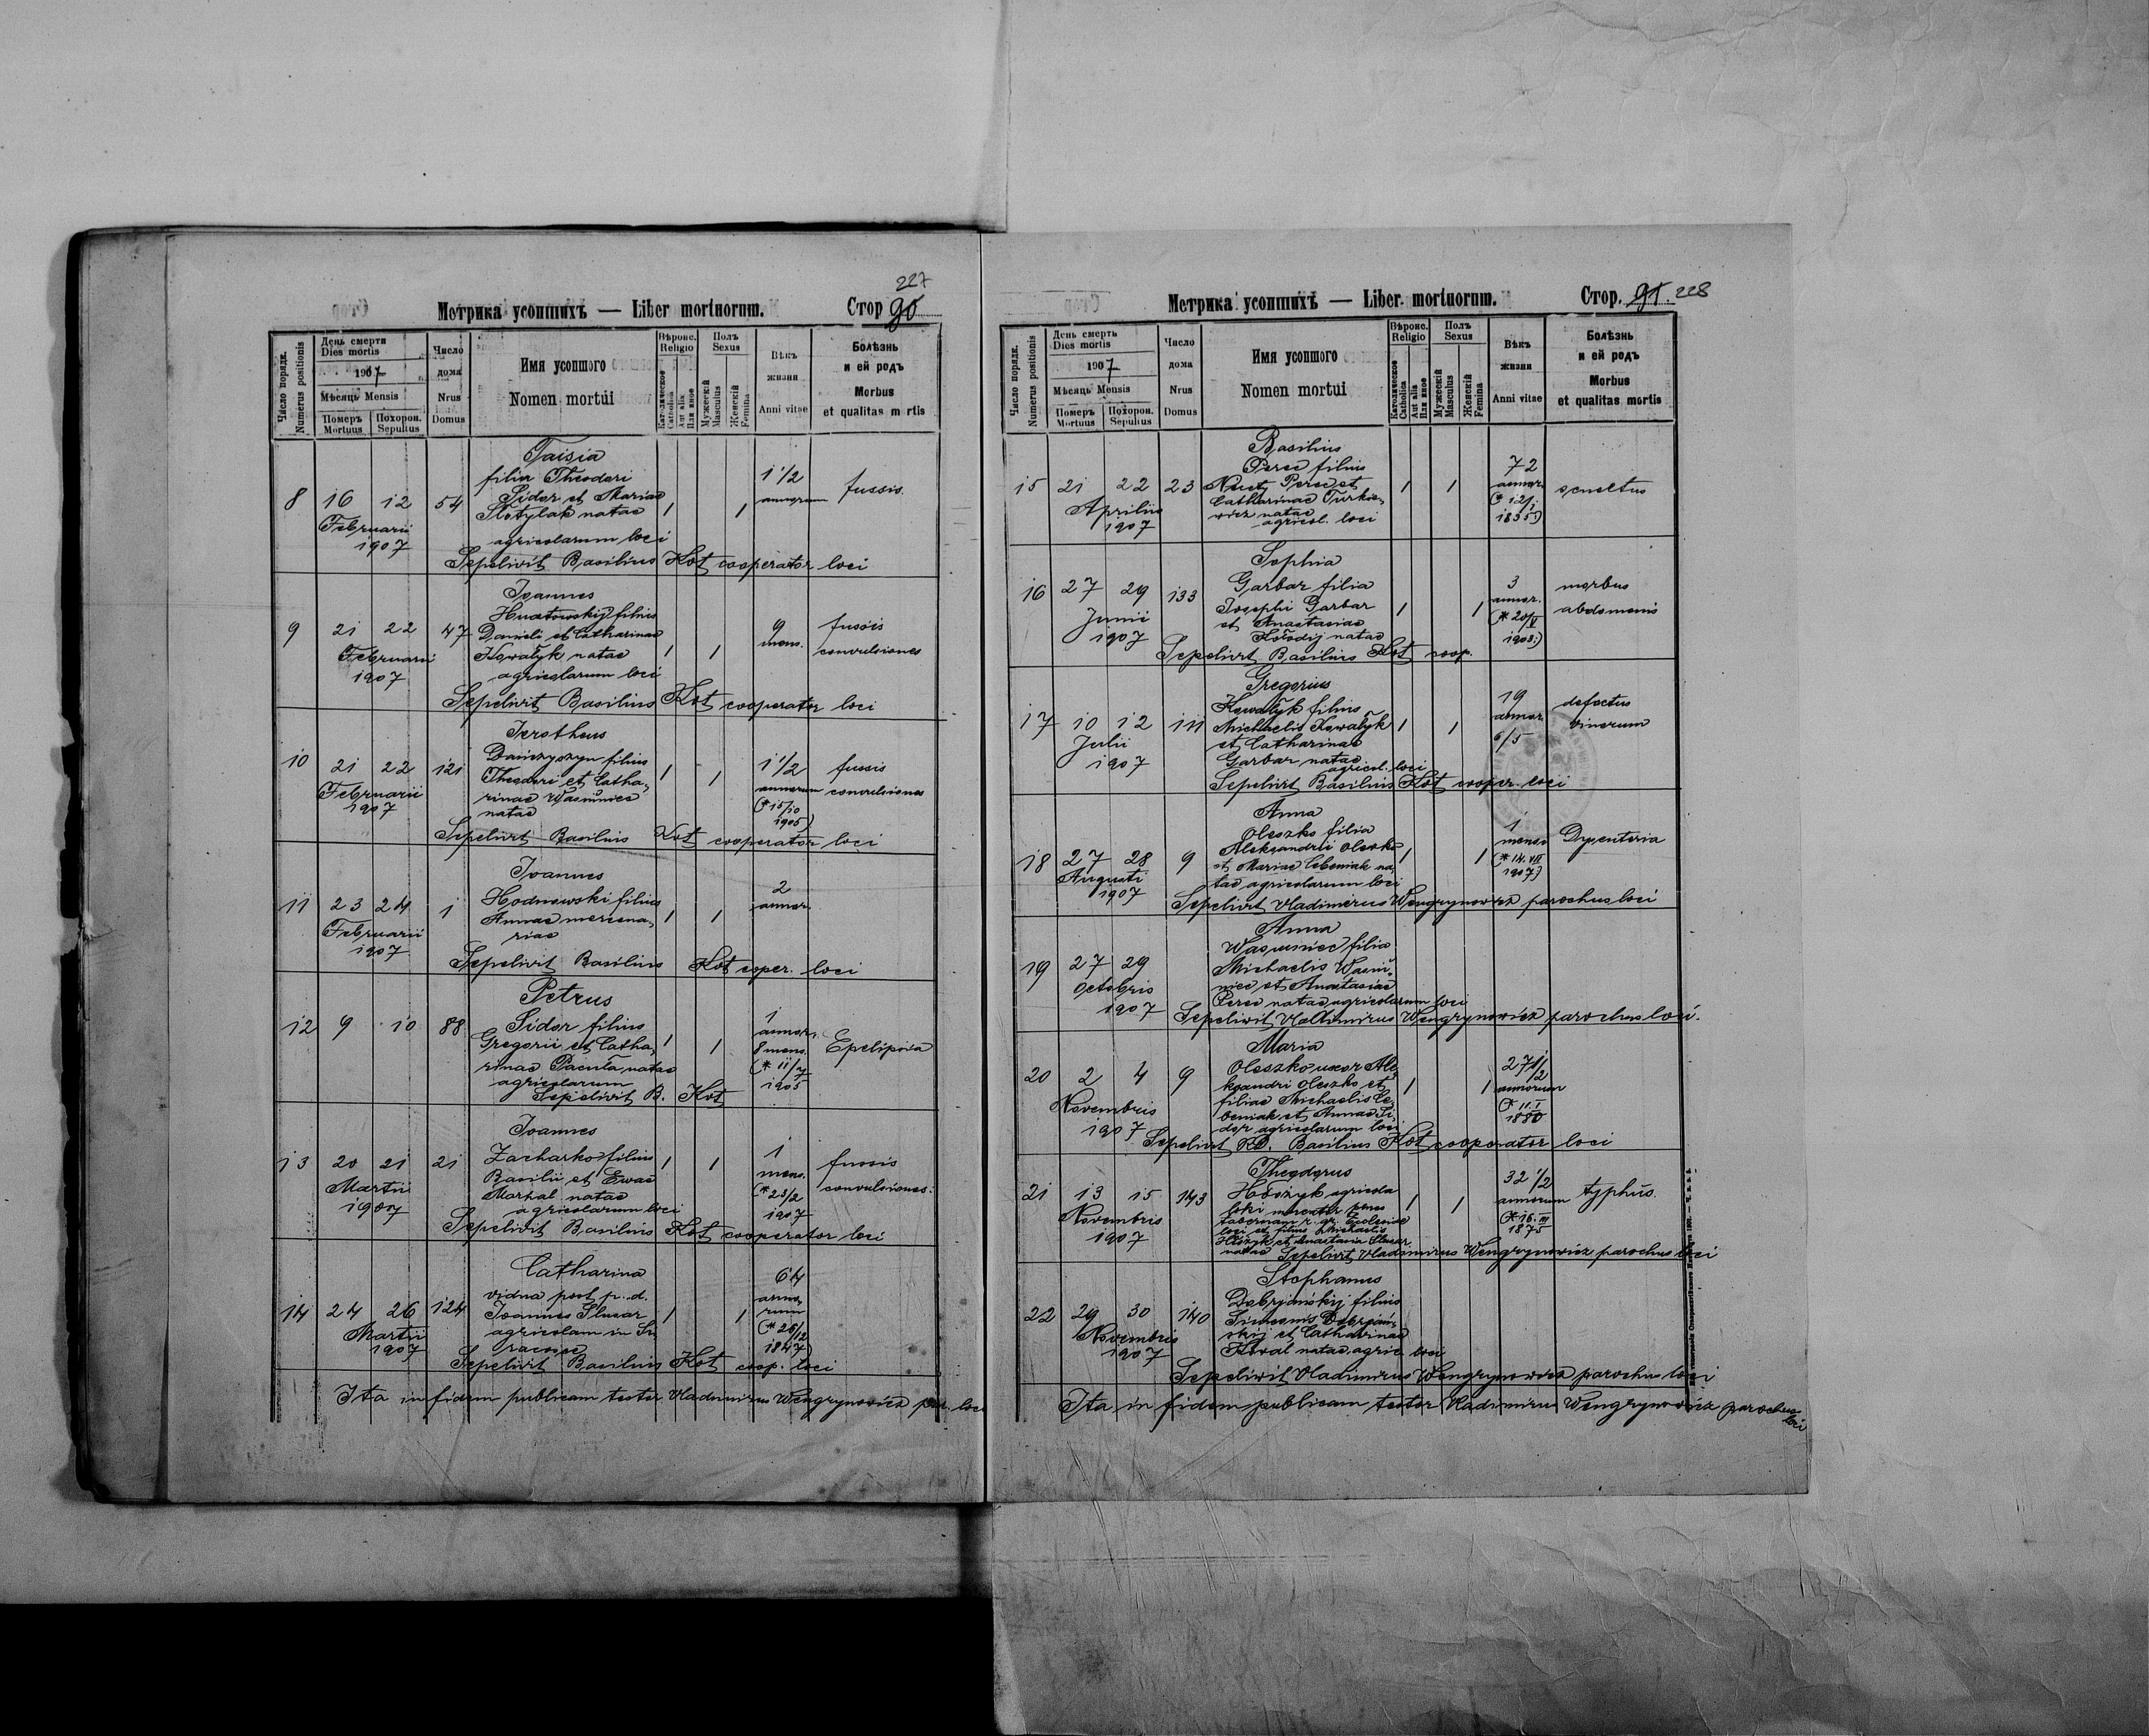 227
Метрика усопшихъ — Liber mortuorum.
Стор 90
Число порядк.
Numerus positionis
День смерти
Dies mortis
1907
Мѣсяць Mensis
Померъ
Mortuus
Похорон.
Sepultus
Число
дома
Nrus
Domus
Имя усопшого
Nomen mortui
Вѣроис.
Religio
Католическое
Catholica
Aut alia
Или иное
Полъ
Sexus
Мужескій
Masculus
Женскій
Femina
Вѣкъ
жизни
Anni vitae
Болѣзнь
и ей родъ
Morbus
et qualitas m rtis
8 16 12 54
Februarii
1907
Taisia
filia Theodori
Sidor et Mariae
Slotylak natae
agricolarum loci
1 1
1 1/2
annorum
tussis.
Sepelivit Basilius Kot cooperator loci
9 21 22 47
Februarii
1907
Joannes
filius
Danieli et Catharinae
Kowalyk natae
agricolarum loci
1 1
9
mens.
tussis
convulsiones
Sepelivit Basilius Kot cooperator loci
10 21 22 121
Februarii
1907
Jerotheus
Dańczyszyn filius
Theodori et Catha,
rinae Wasiuniec
natae
1 1
1 1/2
annorum
(* 15/10
1905)
tussis
convulsiones
Sepelivit Basilius Kot cooperator loci
11 23 24 1
Februarii
1907
Joannes
Hodnowski filius
Annae mercena,
riae
1 1
2
annor.
Sepelivit Basilius Kot coper. loci
12 9 10 88
Petrus
Sidor filius
Gregorii et Catha,
rinae Pacuła natae
agricolarum
1 1
1
annor.
8 mens.
(* 11/7
1905
Epelipsia
Sepelivit B. Kot
13 20 21 21
Martii
1907
Joannes
Zacharko filius
Basilii et Evae
Marhal natae
agricolarum loci
1 1
1
mens.
(* 23/2
1907
tussis
convulsiones.
Sepelivit Basilius Kot cooperator loci
14 24 26 124
Martii
1907
Catharina
vidua post p. d.
Joannes Slusar
agricolam in Si
racise
1 1
64
anno,
rum
(* 26/12
1847)
Sepelivit Basilius Kot coop. loci
Ita in fidem publicam testor Vladimirus Wengrynowicz par. loci
Метрика усопшихъ — Liber mortuorum.
Стор. 91. 228
Число порядк.
Numerus positionis
День смерть
Dies mortis
1907
Мѣсяць Mensis
Померъ
Mortuus
Похорон.
Sepultus
Число
дома
Nrus
Domus
Имя усопшого
Nomen mortui
Вѣроис.
Religio
Католическое
Catholica
Aut alia
Или иное
Полъ
Sexus
Мужескій
Masculus
Женскій
Femina
Вѣкъ
жизни
Anni vitae
Болѣзнь
и ей родъ
Morbus
et qualitas mortis
15 21 22 23
Aprilis
1907
Basilius
Perec filius
Perec et
Catharinae Turkie,
wicz natae
agricol. loci
1 1
72
annor.
(* 12/1
1835)
senectus
16 27 29 133
Junii
1907
Sophia
Garbar filia
Josephi Garbar
et Anastasiae
Kołodij natae
1 1
3
annor.
(* 20/V
1903)
morbus
abdomenis
Sepelivit Basilius Kot coop.
17 10 12 111
Julii
1907
Gregorius
Kowalyk filius
Michaelis Kowalyk
et Catharinae
Garbar natae
agricol. loci
1 1
19
annor.
6/5
defectus
virierum
Sepelivit Basilius Kot cooper. loci
18 27 28 9
Augusti
1907
Anna
Oleszko filia
Aleksandri Oleszko
et Mariae Cebeniak na,
tae agricolarum loci
1 1
1
mensi
(* 14. VII
1907)
Dysenteria
Sepelivit Vladimirus Wengrynowicz parochus loci
19 27 29
Octobris
1907
Anna
Wasiuniec filia
Michaelis Wasiu,
niec et Anastasiae
Perec natae agricolarum loci
Sepelivit Vladimirus Wengrynowicz parochus loci.
20 2 4 9
Novembris
1907
Maria
Oleszko uxor Ale
ksandri Oleszko et
filiae Michaelis Ce,
beniak et Annae Si
dor agricolarum loci
1 1
27 1/2
annorum
(* 11. I
1880
Sepelivit RD. Basilius Kot cooperator loci
21 13 15 143
Novembris
1907
Theodorus
agricola
loci penes
tabernam r. gr. Ecclesiae
loci filius Michaelis
et Anastasia Slusar
natae
1 1
32 1/2
annorum
(* 16. III
1875
typhus.
Sepelivit Vladimirus Wengrynowicz parochus loci
22 29 30 140
Novembris
1907
Stephanus
Dobrjańskij filius
Simeonis Dobrjań,
skij et Catharinae
Kowal natae agric. loci
Sepelivit Vladimirus Wengrynowicz parochus loci
Ita in fidem publicam testor Vladimirus Wengrynowicz parochus
loci